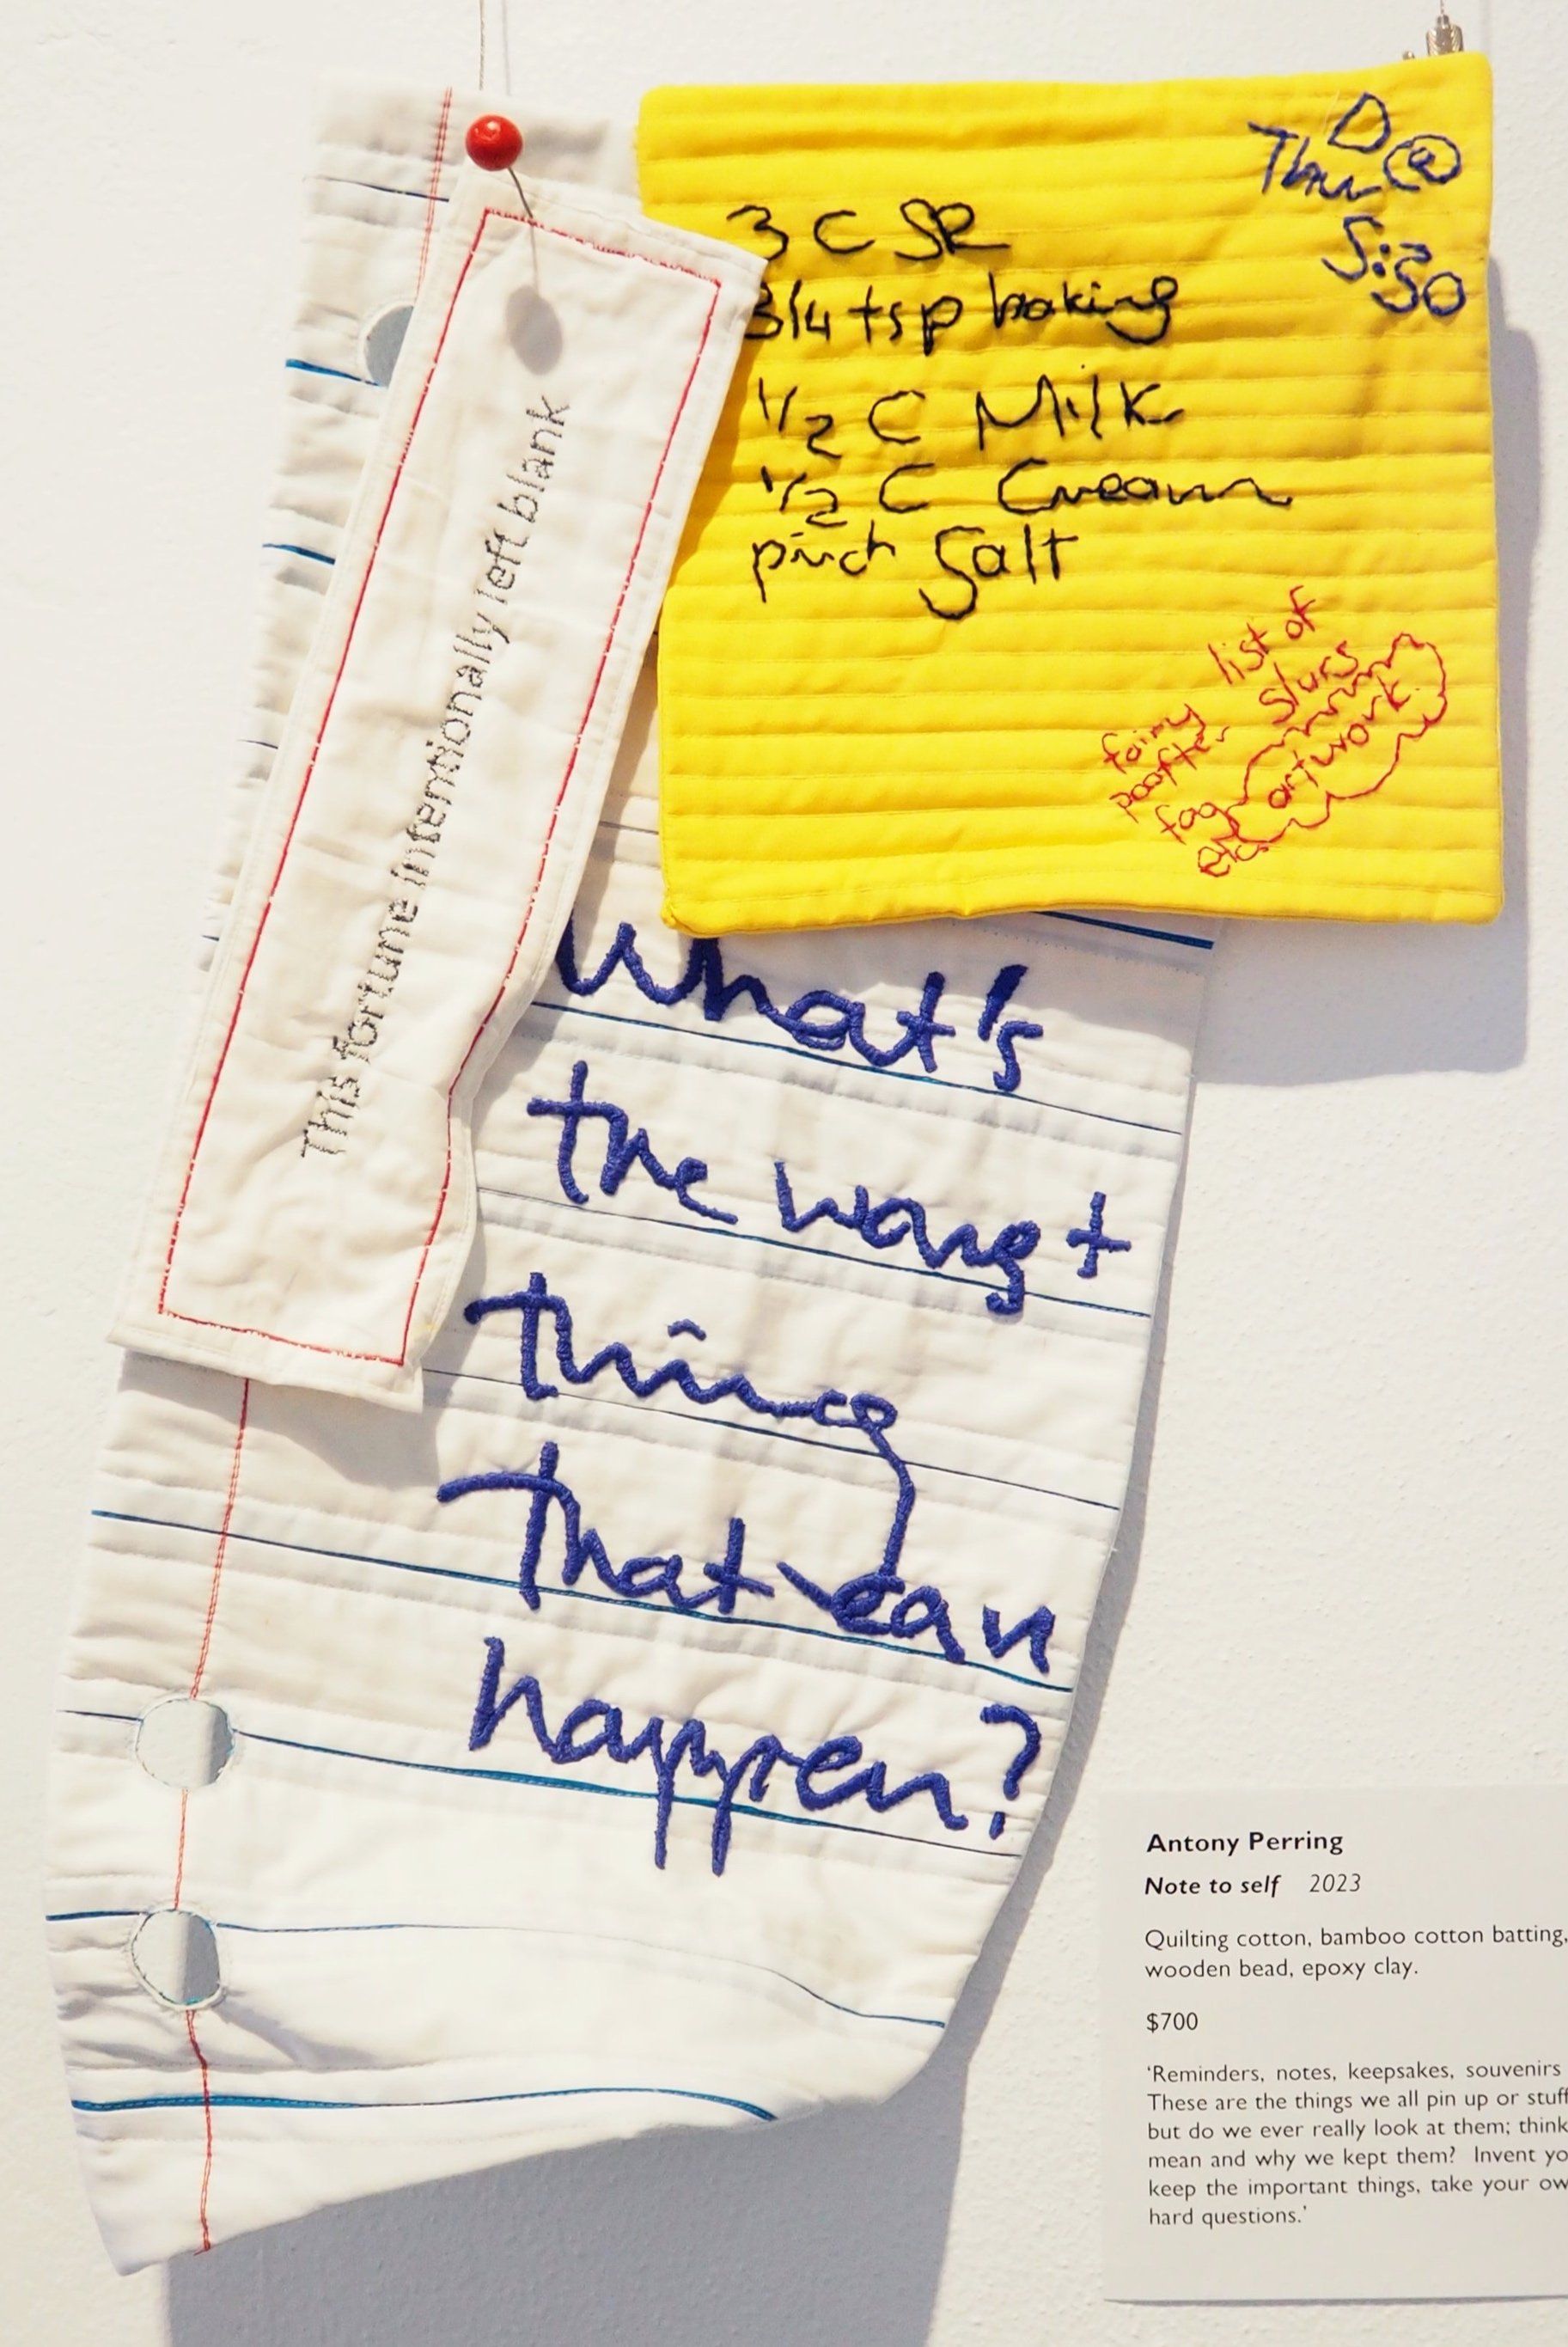 This fortune intentionally left blank
D
Thu @
5:30
3 C SR
3/4 tsp baking
1/2 C Milk
1/2 C Cream
pinch Salt
list of
slurs
artwork
fairy
poofter
fag
etc.
What's
the worst
thing
that can
happen?
Antony Perring
Note to self 2023
Quilting cotton, bamboo cotton batting,
wooden bead, epoxy clay.
$700
‘Reminders, notes, keepsakes, souvenirs
These are the things we all pin up or stuff
but do we ever really look at them; think
mean and why we kept them? Invent yo
keep the important things, take your ow
hard questions.’